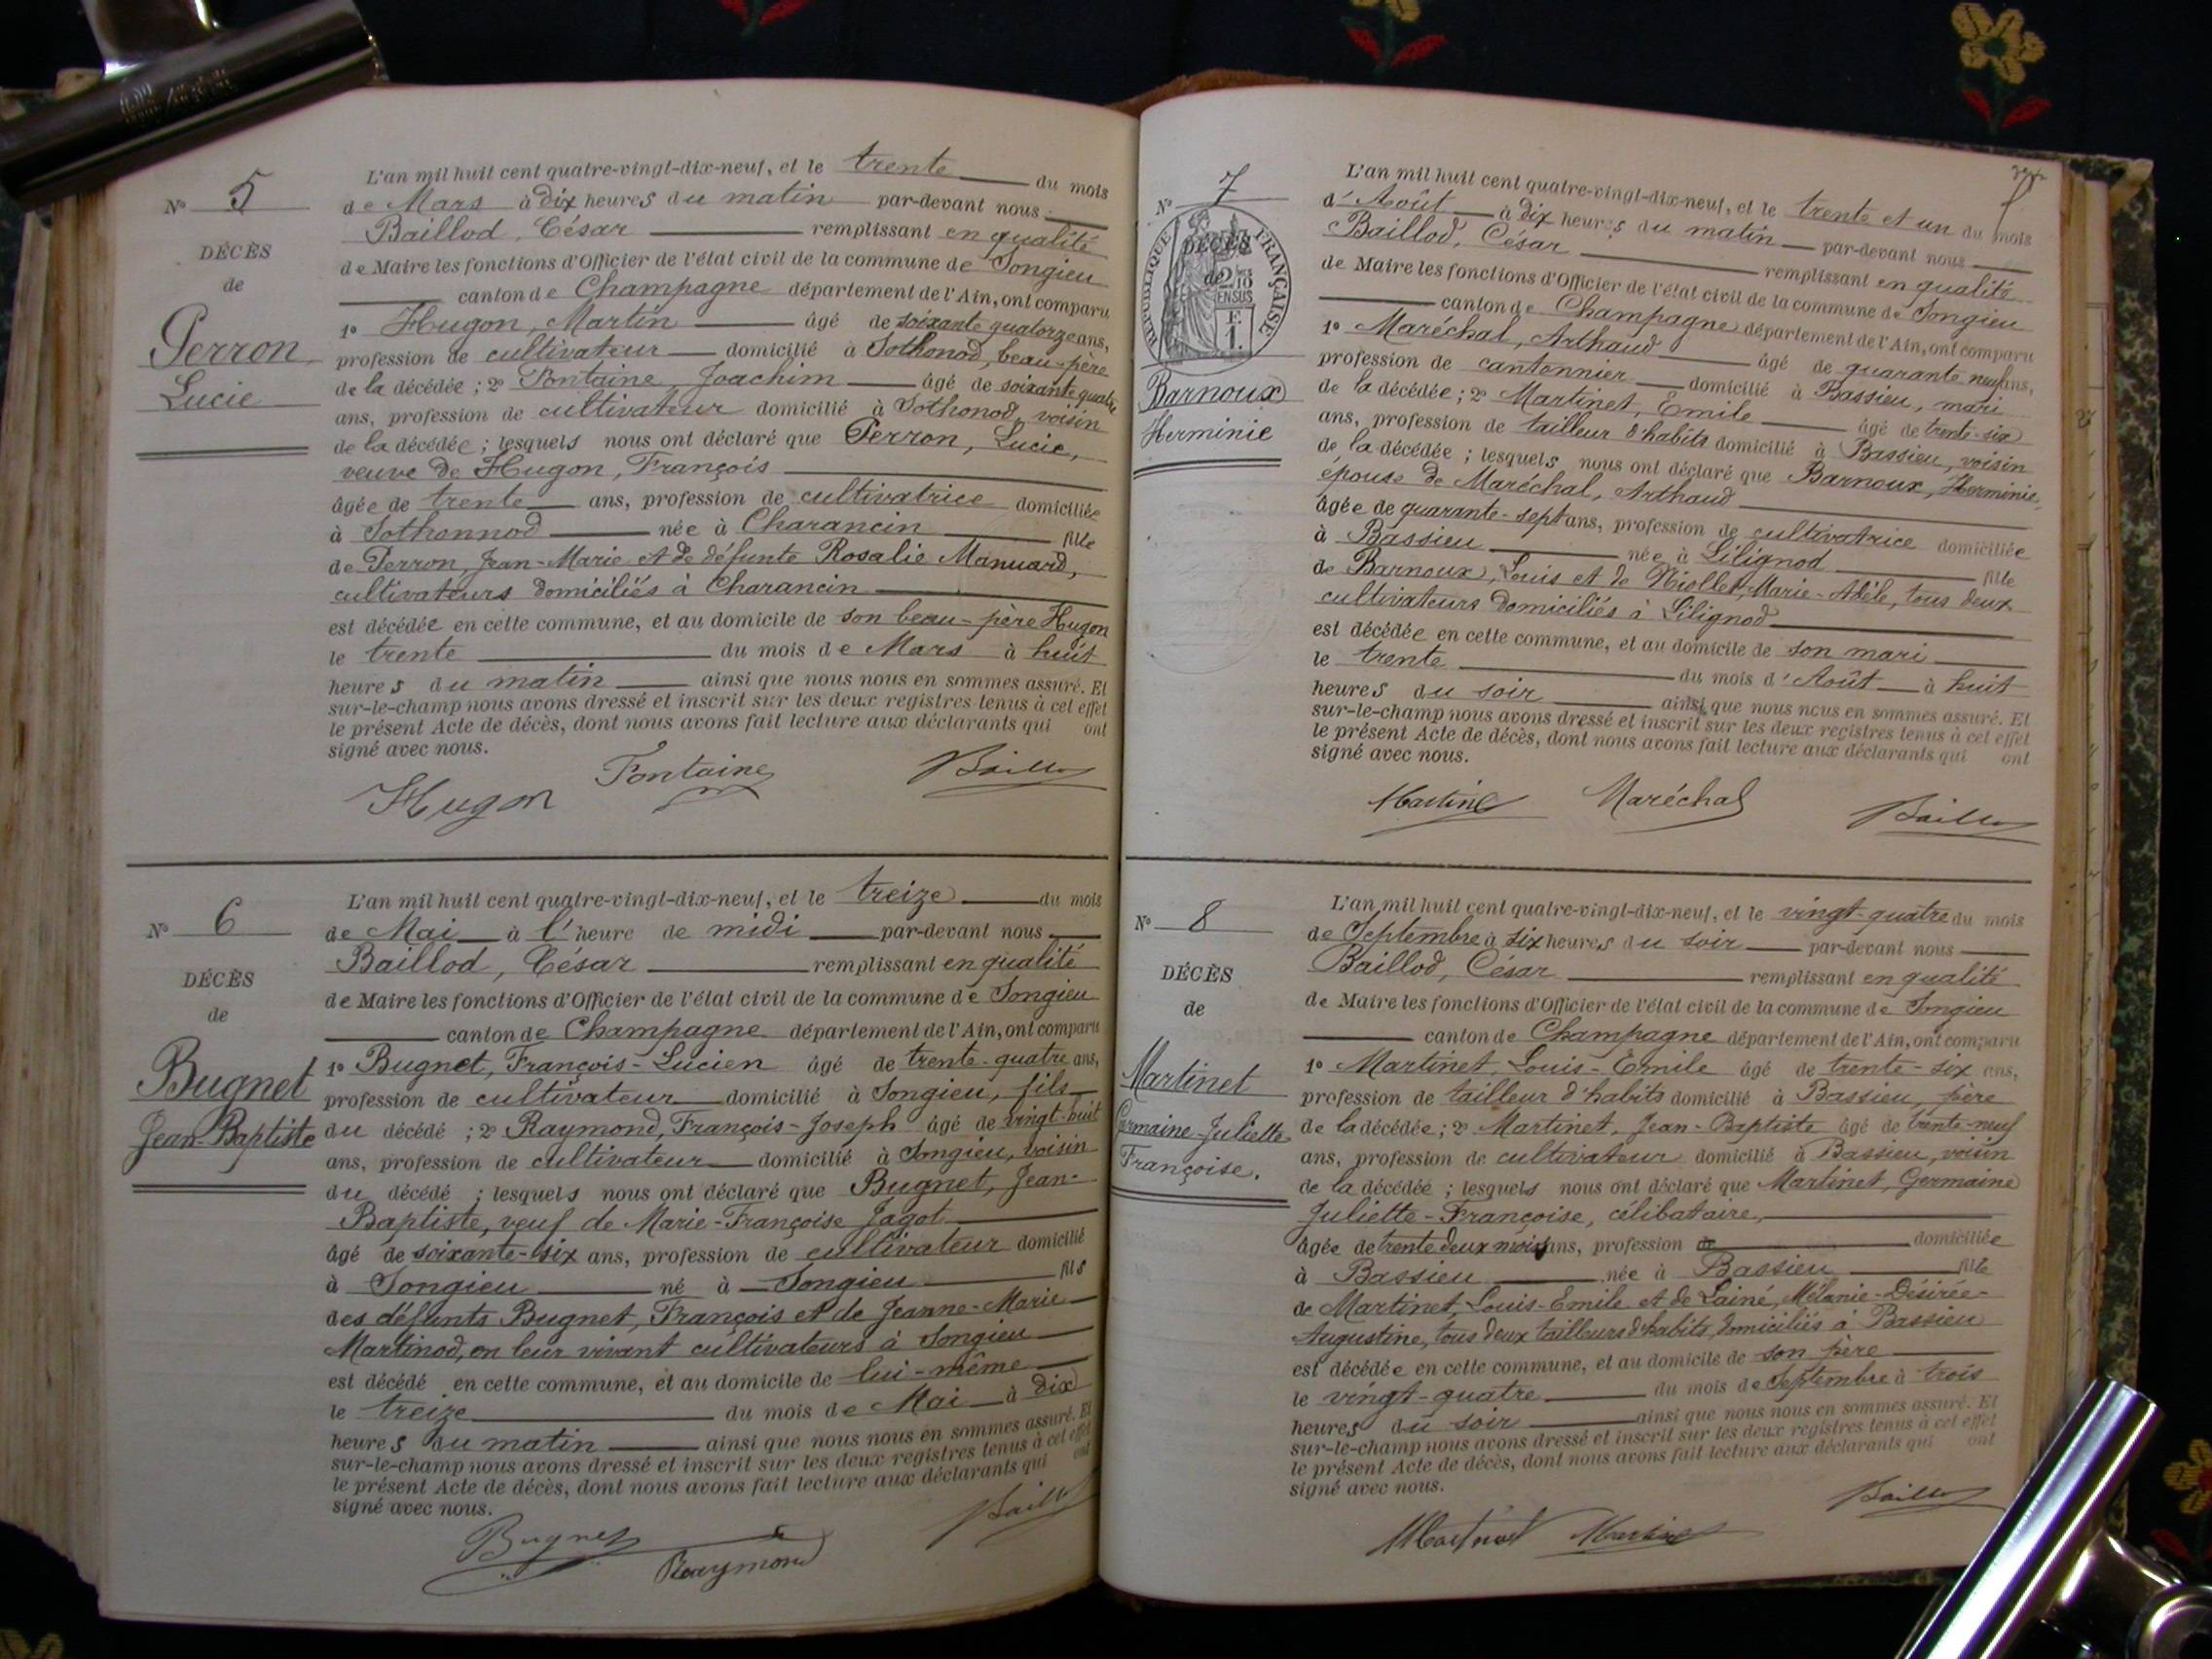 N° 5
DÉCÈS
de
Perron
Lucie
L'an mil huit cent quatre-vingt-dix-neuf, et le trente du mois
de Mars à dix heures du matin par-devant nous
Baillod, César remplissant en qualité
de Maire les fonctions d'Officier de l'état civil de la commune de Songieu
canton de Champagne département de l'Ain, ont comparu
1° Hugon, Martin âgé de soixante quatorze ans,
profession de cultivateur domicilié à Sothonod, beau-père
de la décédée ; 2° Fontaine, Joachim âgé de soixante quatre
ans, profession de cultivateur domicilié à Sothonod, voisin
de la décédée ; lesquels nous ont déclaré que Perron, Lucie,
veuve de Hugon, François
âgée de trente ans, profession de cultivatrice domiciliée
à Sothonnod née à Charancin fille
de Perron, Jean-Marie et de défunte Rosalie Manuard,
cultivateurs domiciliés à Charancin
est décédée en cette commune, et au domicile de son beau-père Hugon
le trente du mois de Mars à huit
heures du matin ainsi que nous nous en sommes assuré. Et
sur-le-champ nous avons dressé et inscrit sur les deux registres tenus à cet effet
le présent Acte de décès, dont nous avons fait lecture aux déclarants qui ont
signé avec nous.
Hugon Fontaine Baillod
N° 6
DÉCÈS
de
Bugnet
Jean-Baptiste
L'an mil huit cent quatre-vingt-dix-neuf, et le treize du mois
de Mai à l'heure de midi par-devant nous
Baillod, César remplissant en qualité
de Maire les fonctions d'Officier de l'état civil de la commune de Songieu
canton de Champagne département de l'Ain, ont comparu
1° Bugnet, François-Lucien âgé de trente-quatre ans,
profession de cultivateur domicilié à Songieu, fils
du décédé ; 2° Raymond, François-Joseph âgé de vingt-huit
ans, profession de cultivateur domicilié à Songieu, voisin
du décédé ; lesquels nous ont déclaré que Bugnet, Jean-
Baptiste, veuf de Marie-Françoise Jagot
âgé de soixante-six ans, profession de cultivateur domicilié
à Songieu né à Songieu fils
des défunts Bugnet, François et de Jeanne-Marie
Martinod, en leur vivant cultivateurs à Songieu
est décédé en cette commune, et au domicile de lui-même
le treize du mois de Mai à dix
heures du matin ainsi que nous nous en sommes assuré. Et
sur-le-champ nous avons dressé et inscrit sur les deux registres tenus à cet effet
le présent Acte de décès, dont nous avons fait lecture aux déclarants qui ont
signé avec nous.
Bugnet Raymond Baillod
N° 7
RÉPUBLIQUE FRANÇAISE
DÉCÈS
de
2/10 EN SUS
Barnoux
Herminie
L'an mil huit cent quatre-vingt-dix-neuf, et le trente et un du mois
d'Août à dix heures du matin par-devant nous
Baillod, César remplissant en qualité
de Maire les fonctions d'Officier de l'état civil de la commune de Songieu
canton de Champagne département de l'Ain, ont comparu
1° Maréchal, Arthaud âgé de quarante neuf ans,
profession de cantonnier domicilié à Bassieu, mari
de la décédée ; 2° Martinet, Emile âgé de trente-six
ans, profession de tailleur d'habits domicilié à Bassieu, voisin
de la décédée ; lesquels nous ont déclaré que Barnoux, Herminie,
épouse de Maréchal, Arthaud
âgée de quarante-sept ans, profession de cultivatrice domiciliée
à Bassieu née à Lilignod fille
de Barnoux, Louis et de Niollet, Marie-Adèle, tous deux
cultivateurs domiciliés à Lilignod
est décédée en cette commune, et au domicile de son mari
le trente du mois d'Août à huit
heures du soir ainsi que nous nous en sommes assuré. Et
sur-le-champ nous avons dressé et inscrit sur les deux registres tenus à cet effet
le présent Acte de décès, dont nous avons fait lecture aux déclarants qui ont
signé avec nous.
Martinet Maréchal Baillod
N° 8
DÉCÈS
de
Martinet
Germaine-Juliette
Françoise.
L'an mil huit cent quatre-vingt-dix-neuf, et le vingt-quatre du mois
de Septembre à six heures du soir par-devant nous
Baillod, César remplissant en qualité
de Maire les fonctions d'Officier de l'état civil de la commune de Songieu
canton de Champagne département de l'Ain, ont comparu
1° Martinet, Louis-Emile âgé de trente-six ans,
profession de tailleur d'habits domicilié à Bassieu, père
de la décédée ; 2° Martinet, Jean-Baptiste âgé de trente-neuf
ans, profession de cultivateur domicilié à Bassieu, voisin
de la décédée ; lesquels nous ont déclaré que Martinet, Germaine
Juliette-Françoise, célibataire,
âgée de trente deux mois ans, profession de domiciliée
à Bassieu née à Bassieu fille
de Martinet, Louis-Emile et de Lainé, Mélanie-Désirée-
Augustine, tous deux tailleurs d'habits domiciliés à Bassieu
est décédée en cette commune, et au domicile de son père
le vingt-quatre du mois de Septembre à trois
heures du soir ainsi que nous nous en sommes assuré. Et
sur-le-champ nous avons dressé et inscrit sur les deux registres tenus à cet effet
le présent Acte de décès, dont nous avons fait lecture aux déclarants qui ont
signé avec nous.
Martinet Martinet Baillod